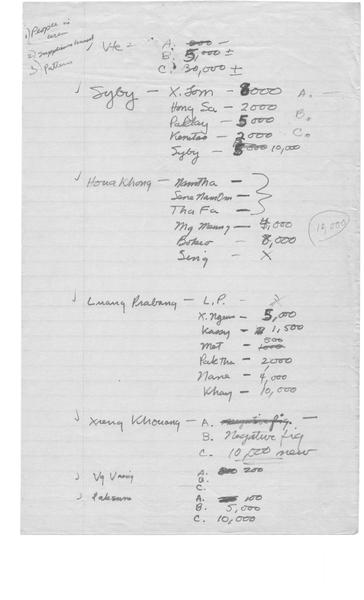 1) People in area
2) Supplies
3) Pattern
Vte - A. —
B. 5,000 ±
C. 30,000 ±
Syby - X. Lom - 8000 A. —
Hong Sa - 2000 B.
Paklay - 5000 C.
Kentao - 2000
Syby - 10,000
Houa Khong - NamTha -
Sene NamOm -
Tha Fa -
Mg Meung - 4,000 12,000
Bokeo - 8,000
Sing - X
Luang Prabang - L.P. -
X. Ngeun - 5,000
Kassy - 1,500
Met - 500
Pak Tha - 2000
Nane - 4,000
Khay - 10,000
Xieng Khouang - A. —
B. Negative fig
C. 10,000 new
Vg Vieng A. 200
B.
C.
Paksane A. 100
B. 5,000
C. 10,000